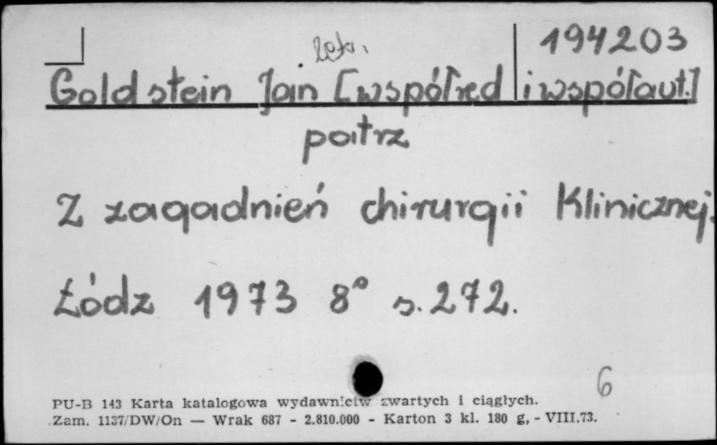 lek. 194203
Goldstein Jan [współred i współaut.]
patrz
Z zagadnień chirurgii klinicznej.
Łódz 1973 8° s. 272.
6
PU-B 143 Karta katalogowa wydawnictw zwartych i ciągłych.
Zam. 1137/DW/On — Wrak 687 - 2.810.000 - Karton 3 kl. 180 g, - VIII.73.